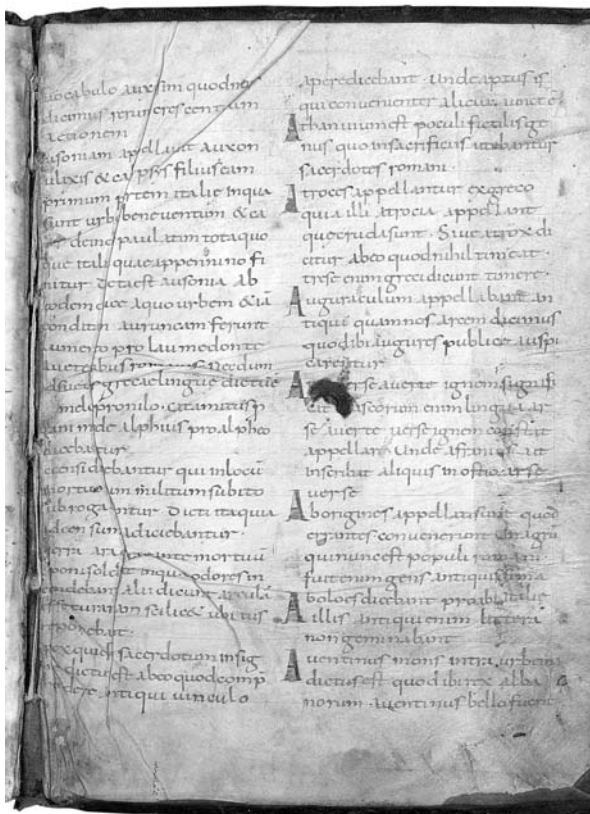 vocabulo auxsim quod nos
dicimus rerum crescentium
actionem
ausoniam appellavit auxon
ulixis & filius eam
primum partem italie in qua
sunt urbi beneventum & ca
deinde paulatim tota quo
que italia quae appennino fi
nitur dicta est ausonia ab
eodem duce a quo urbem & iā
conditam auruncam ferunt
aumento pro laumedonte
a veteribus romanis necdum
adsuetis grecae lingue dictus
melo pro nilo catamitus p
inde alphius pro alpheo
dicebatur
censi dicebantur qui in locū
mortuorum militum subito
subrogabantur dicti ita quia
ad censum adiciebantur
cerra ara que ante mortuū
poni solebat in qua odores in
cendebant alii dicunt arculā
esse turariam scilic& ubi tus
reponebant
pex qui est sacerdotum insig
dictus est ab eo quod comp
antiqui vinculo
apere dicebant unde aptus is
qui convenienter alicui iunctē
Athanuvium est poculi fictilis ge
nus quo in sacrificiis utebantur
sacerdotes romani
Atroces appellantur ex greco
quia illi atrocia appellant
que cruda sunt Sive atrox di
citur ab eo quod nihil timeat
trese enim greci dicunt timere
Auguraculum appellabant an
tiqui quam nos arcem dicimus
quod ibi augures publice auspi
carentur
Arse verse averte ignem signifi
cat tuscorum enim lingua ar
se averte verse ignem constat
appellari Unde afranius ait
inscribat aliquis in ostio arse
verse
Aborigines appellati sunt quod
errantes convenerint in agrū
qui nunc est populi romani
fuit enim gens antiquissima
italie
Aboloes dicebant pro ab
illis antiqui enim litterā
non geminabant
Aventinus mons intra urbem
dictus est quod ibi rex alba
norum aventinus bello fuerit